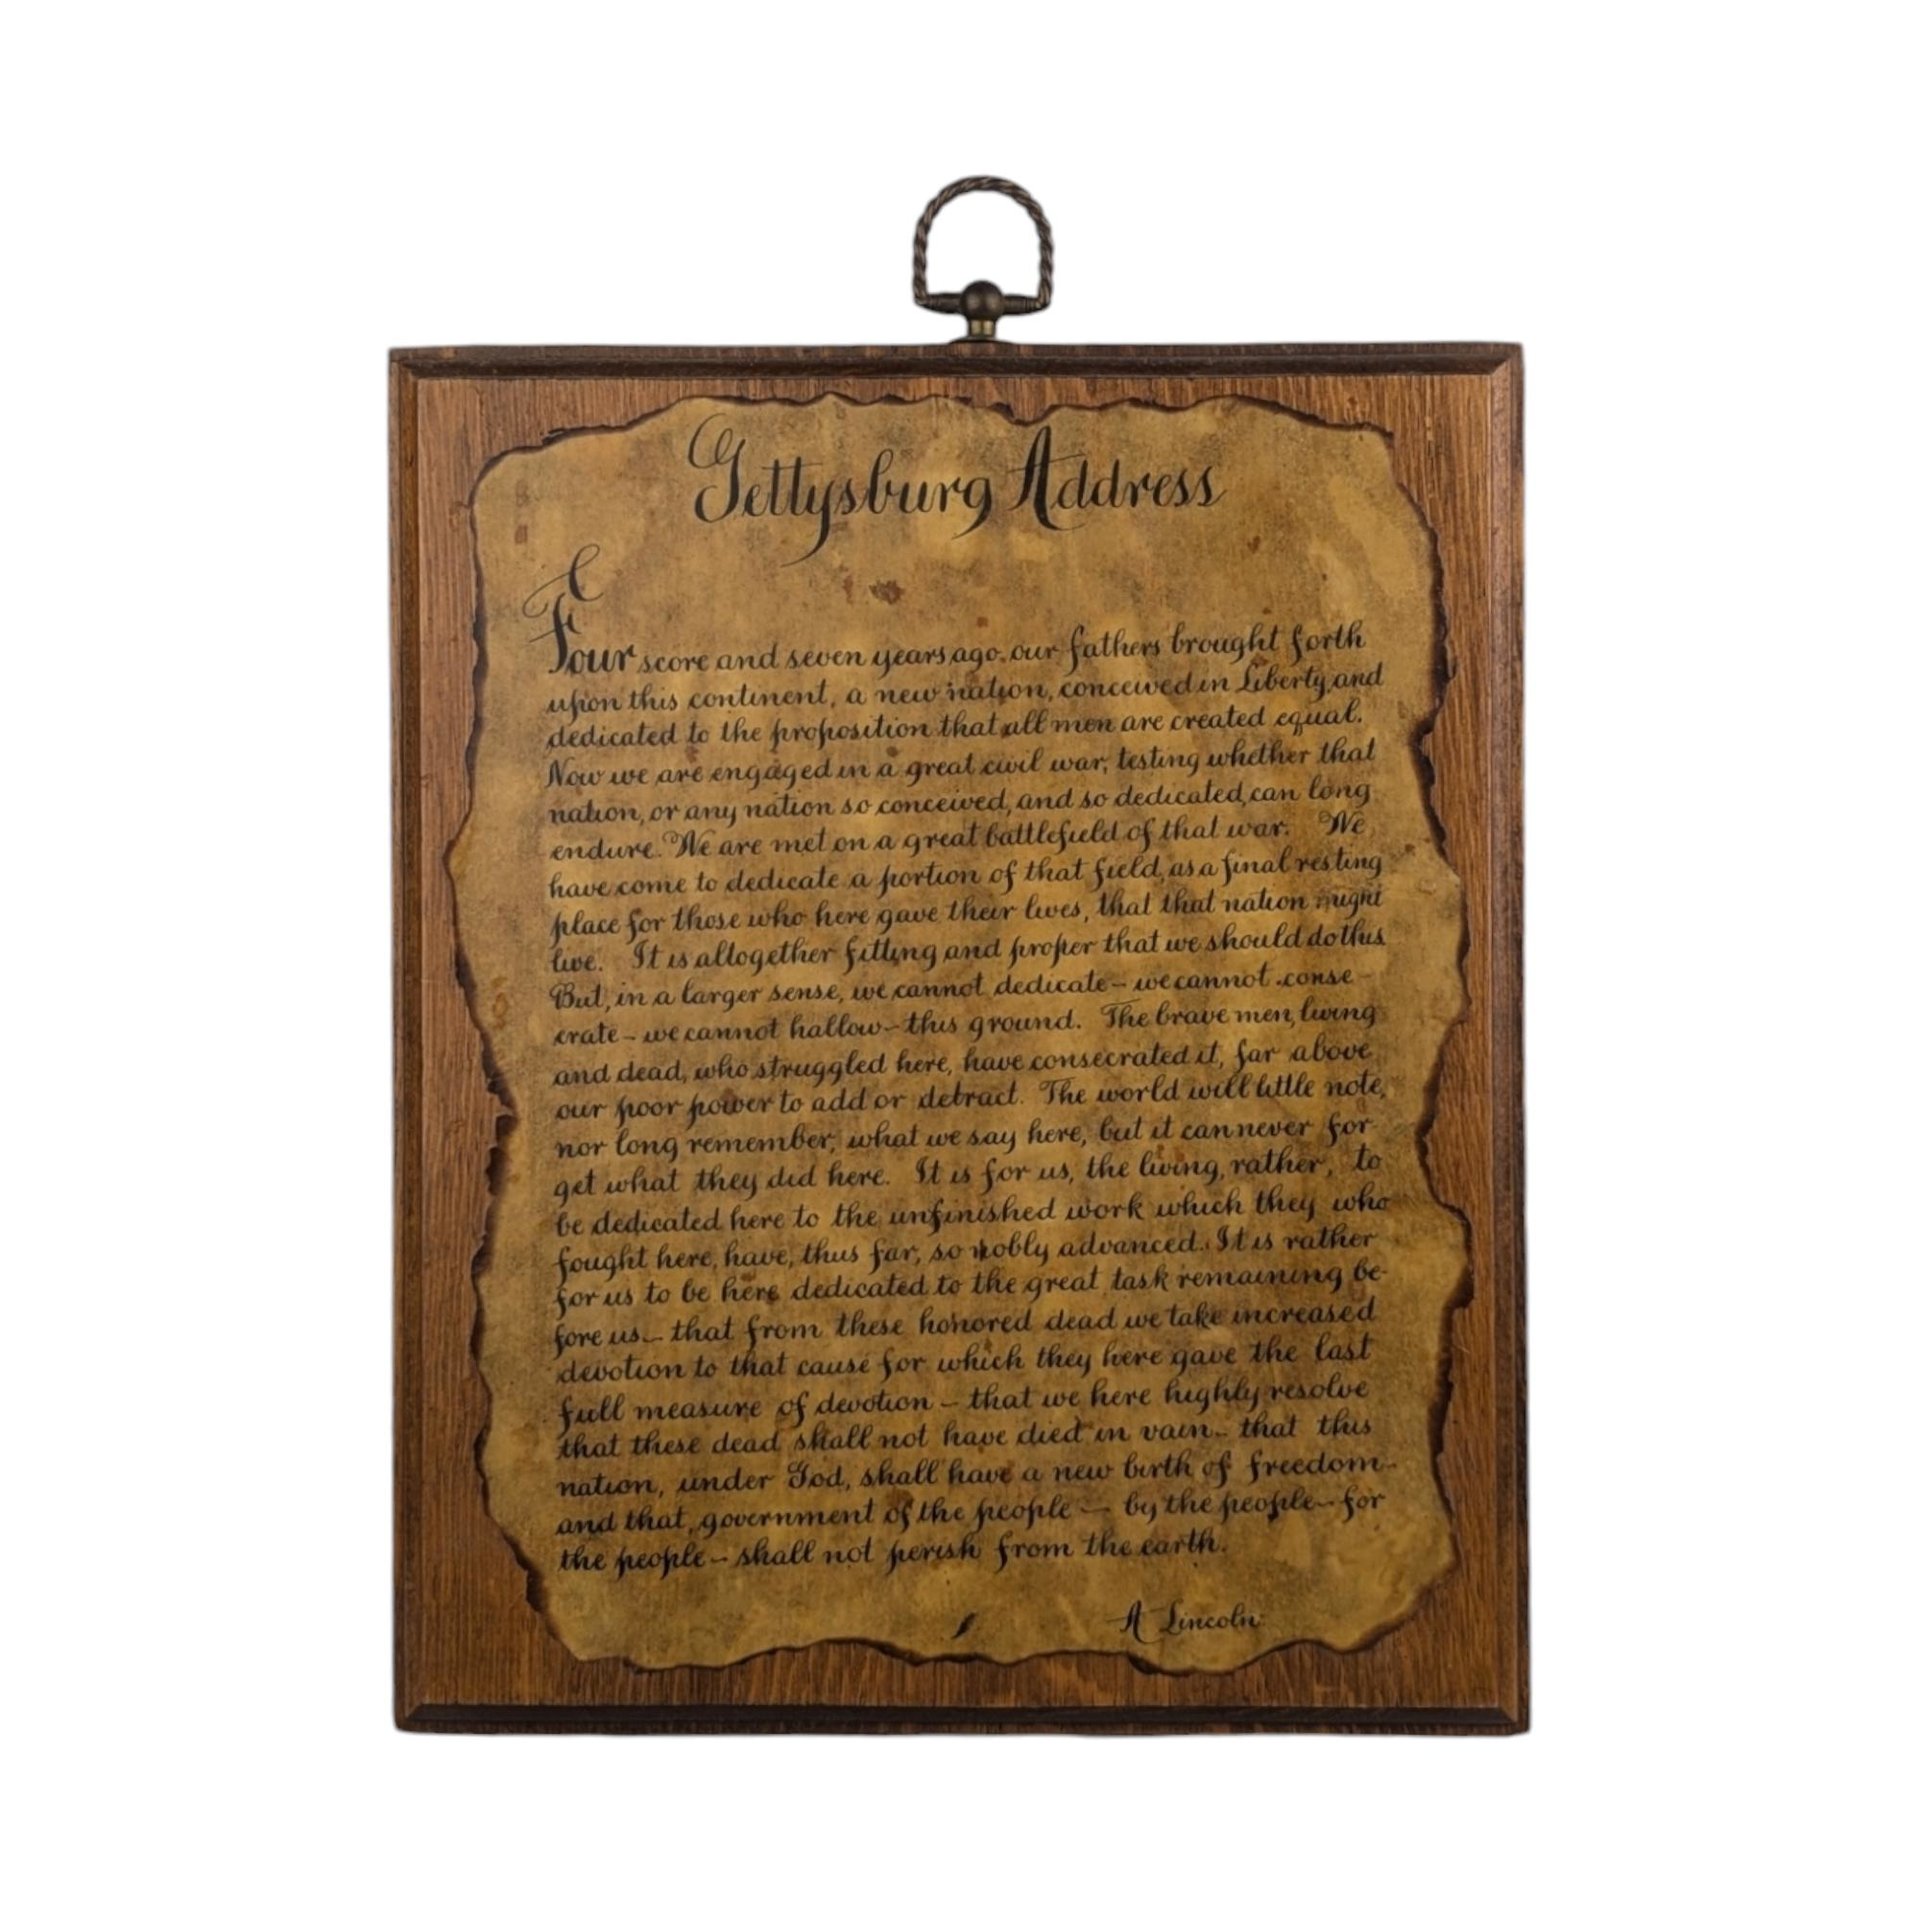 Gettysburg Address
Four score and seven years ago, our fathers brought forth
upon this continent, a new nation, conceived in Liberty, and
dedicated to the proposition that all men are created equal.
Now we are engaged in a great civil war, testing whether that
nation, or any nation so conceived, and so dedicated, can long
endure. We are met on a great battlefield of that war. We
have come to dedicate a portion of that field, as a final resting
place for those who here gave their lives, that that nation might
live. It is altogether fitting and proper that we should do this.
But, in a larger sense, we cannot dedicate – we cannot conse-
crate – we cannot hallow – this ground. The brave men, living
and dead, who struggled here, have consecrated it, far above
our poor power to add or detract. The world will little note,
nor long remember, what we say here, but it can never for
get what they did here. It is for us, the living, rather, to
be dedicated here to the unfinished work which they who
fought here, have, thus far, so nobly advanced. It is rather
for us to be here dedicated to the great task remaining be-
fore us – that from these honored dead we take increased
devotion to that cause for which they here gave the last
full measure of devotion – that we here highly resolve
that these dead shall not have died in vain – that this
nation, under God, shall have a new birth of freedom –
and that, government of the people – by the people – for
the people – shall not perish from the earth.
A Lincoln